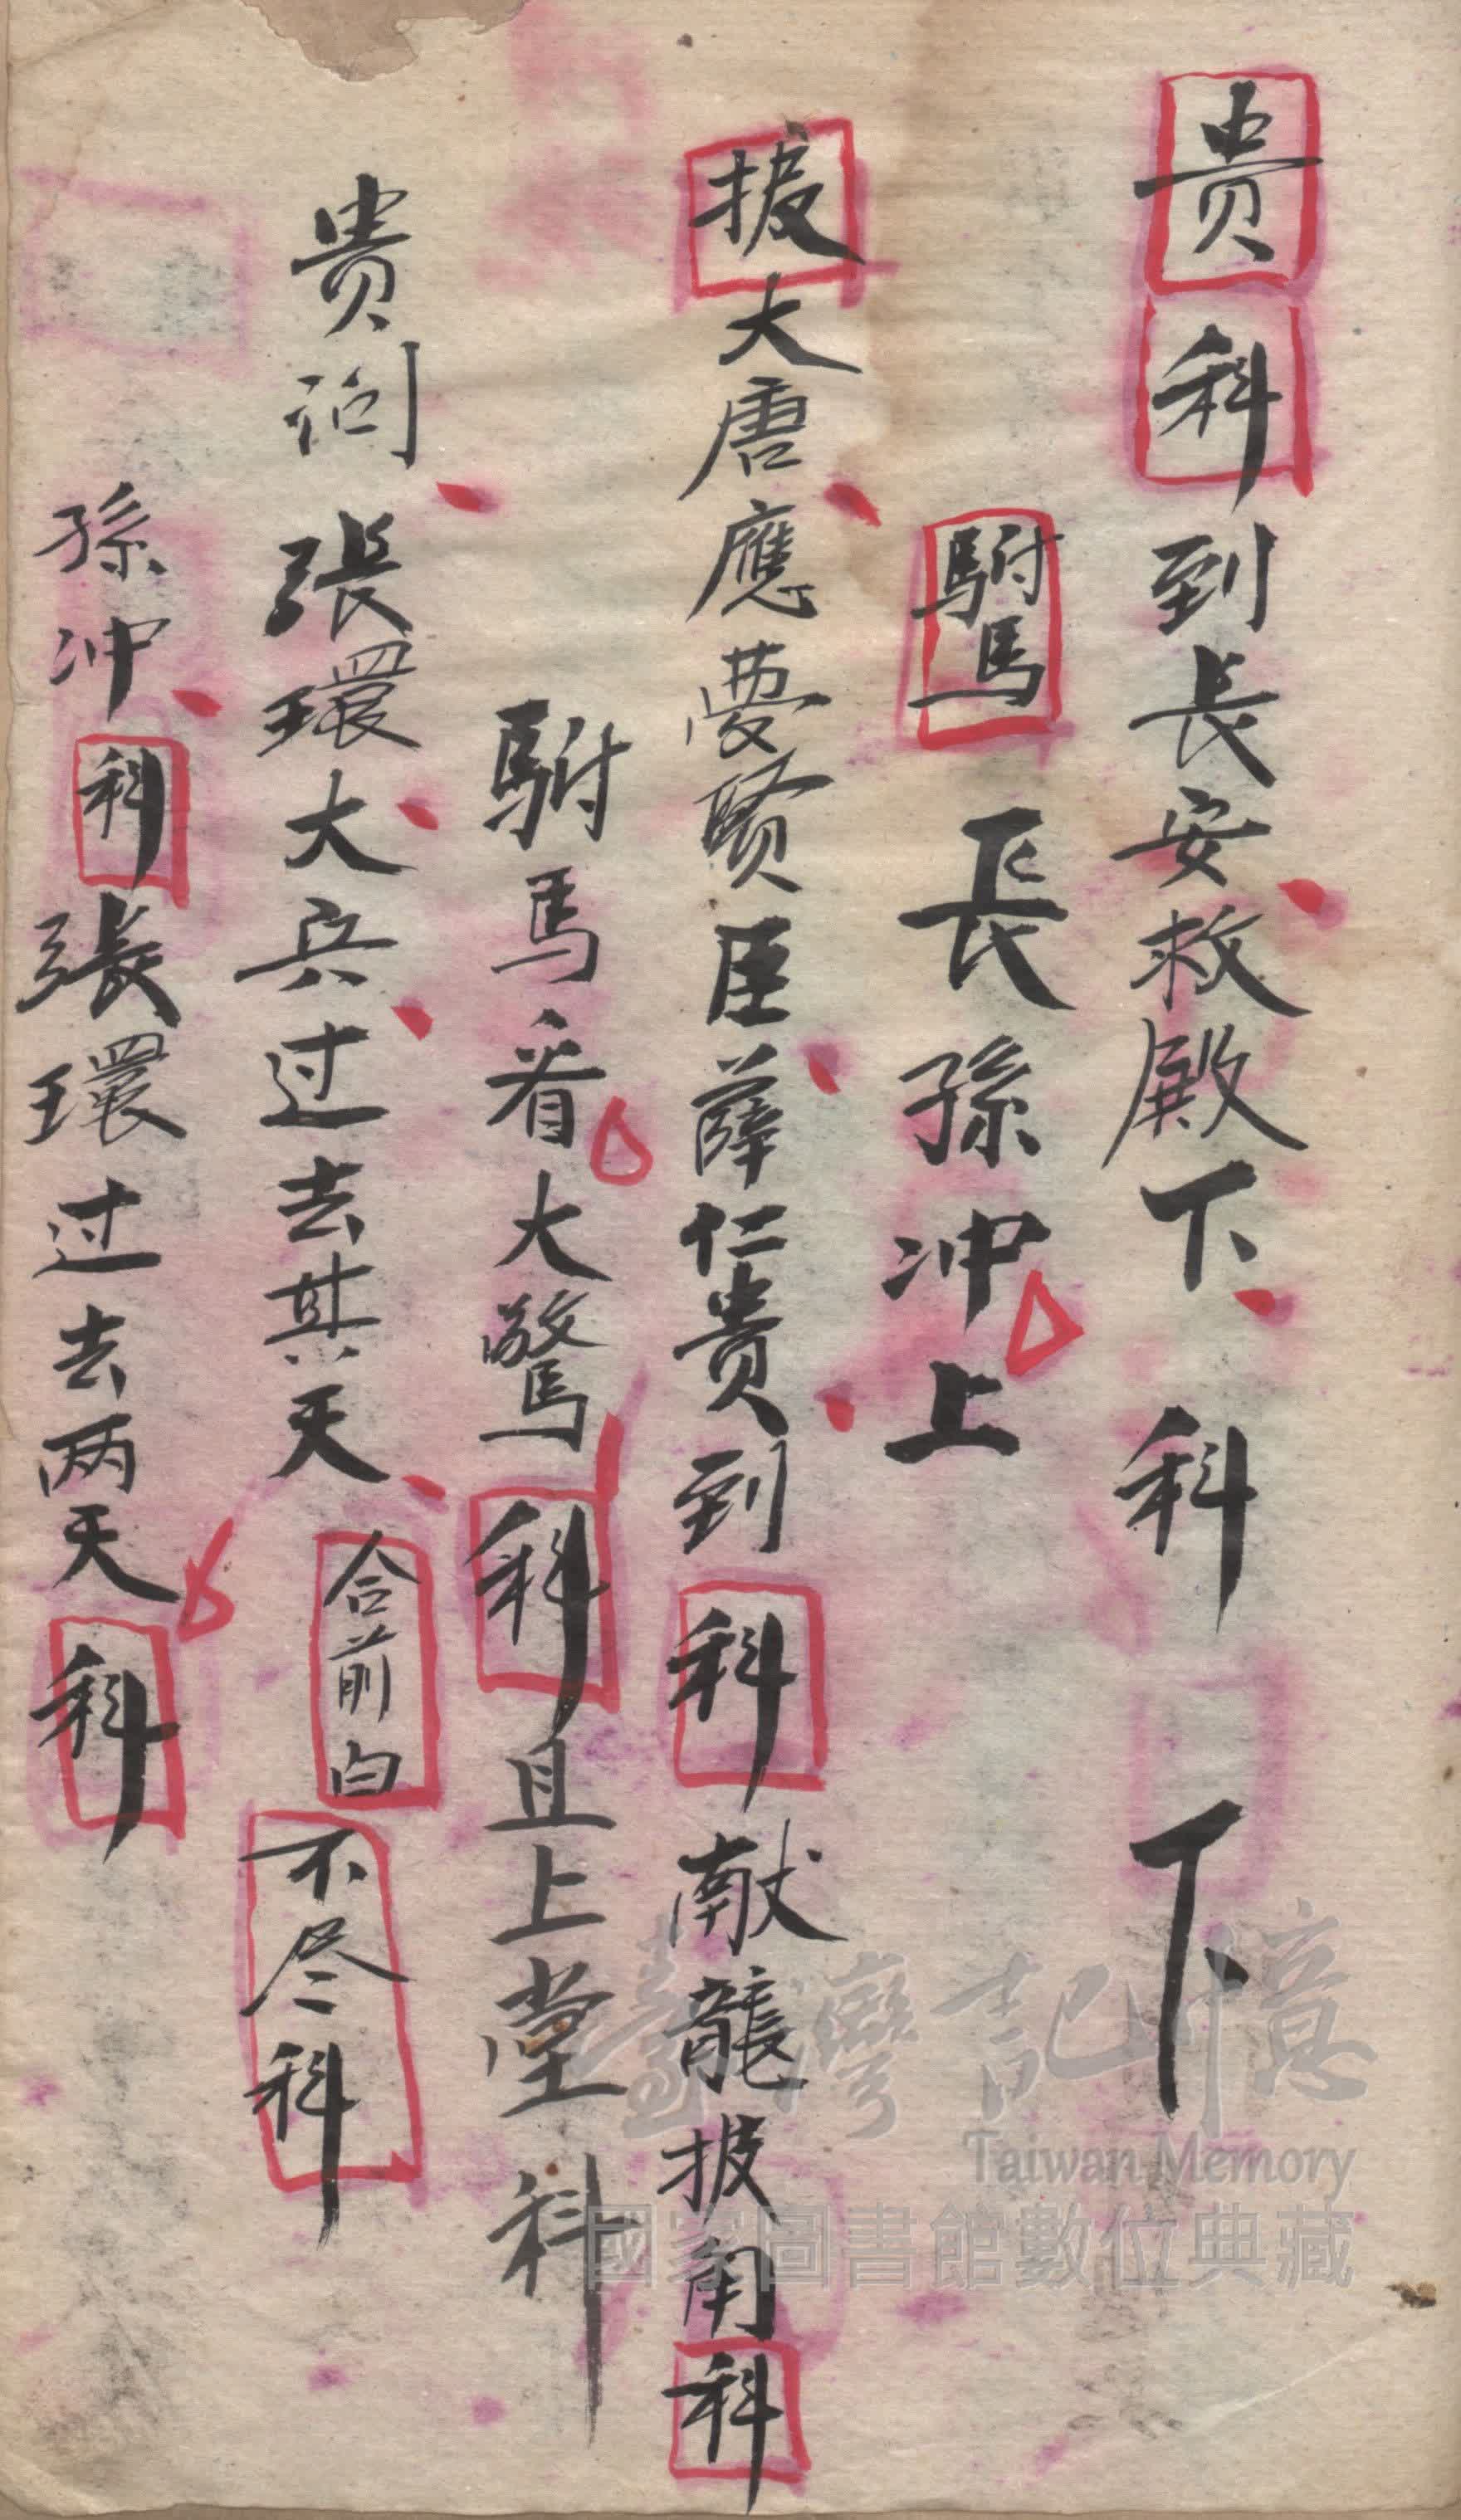 贵科到長安救殿下科 下
駙馬 長孫冲上
披大唐應夢贤臣薛仁贵到科献龍披角科
駙馬看大驚科且上堂科
贵 張環大兵过去其天 合前白 不尽科
孫冲科張環过去两天科
臺灣記憶
Taiwan Memory
國家圖書館數位典藏